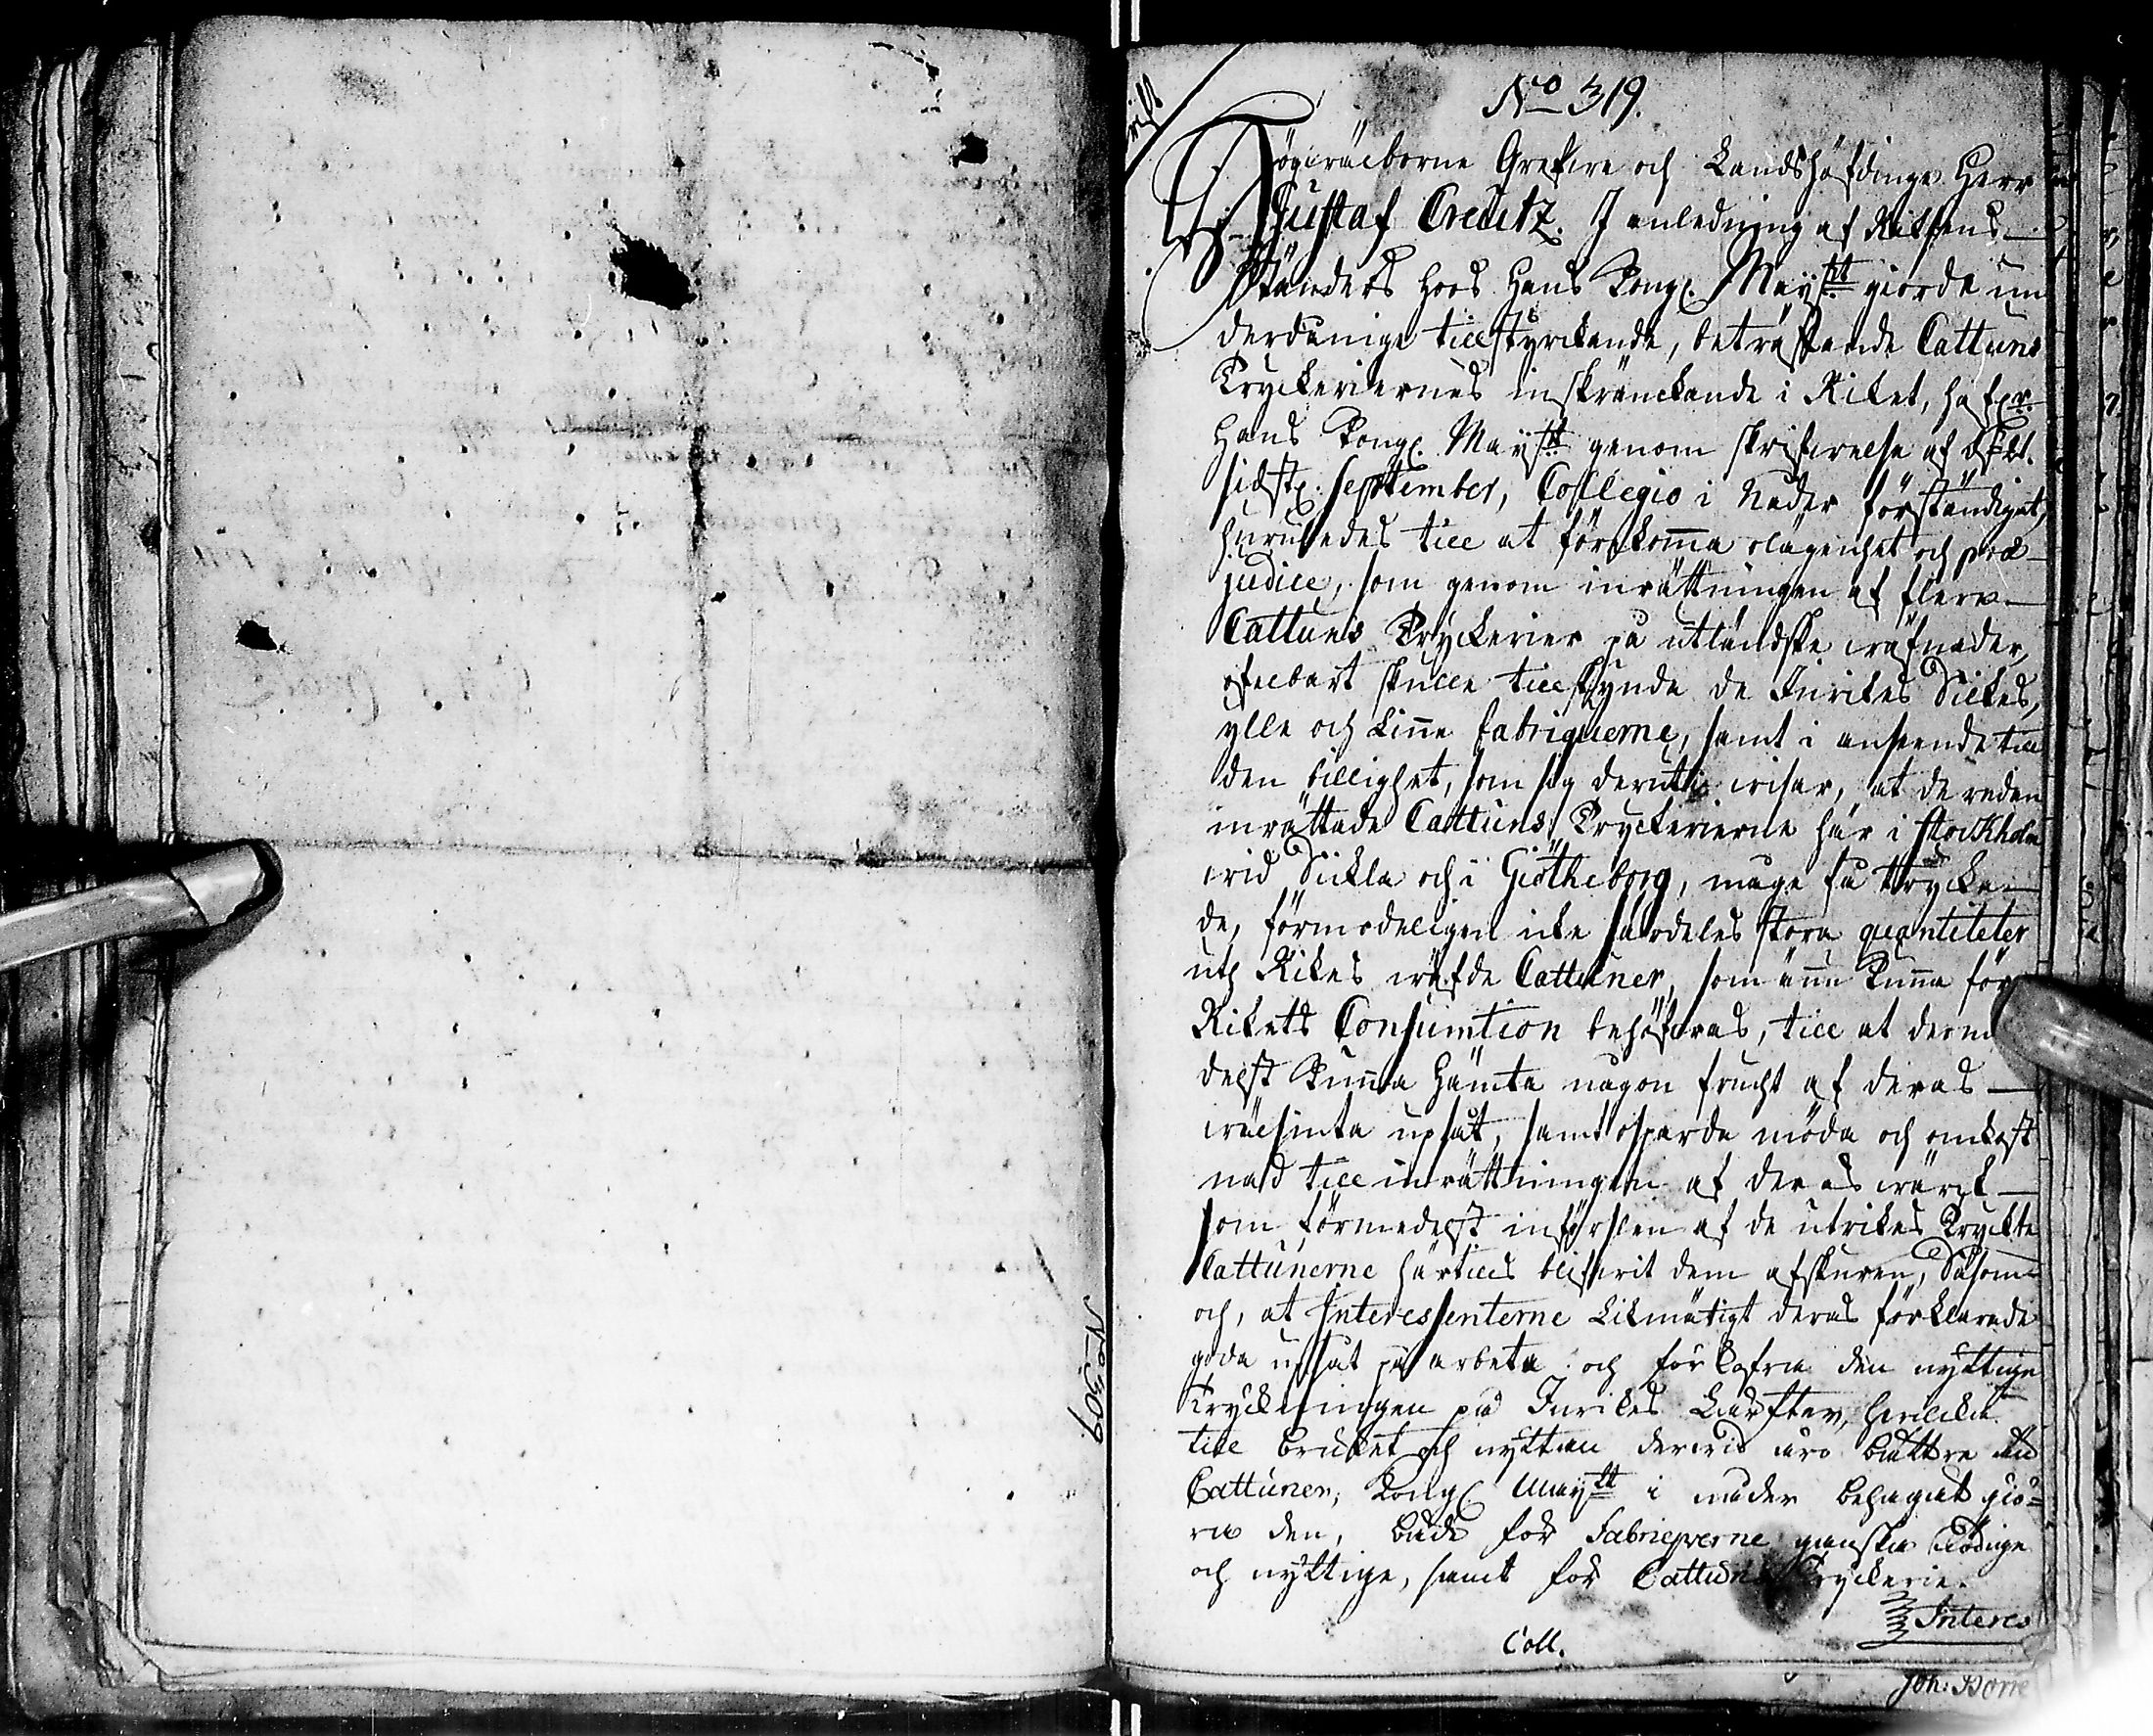 No 319.
Högwälborne Grefwe och Landshöfdinge Herr
Gustaf Creutz. I anledning af Riksens
Ständers hoos Hans Kongl. Maÿst:tt giorde un
derdånige tillstyrckande, beträffande Cattuns
Tryckeriernes inskränckande i Riket, hafwr
Hans Kongl. Maÿst:tt genom skrifwelse af
sidstl. September, Collegio i Nåder förständigat,
huruledes till at förekomma olägenhet och præ-
judice, som genom inrättningen af flere
Cattuns Tryckerier på utländske wäfnader,
ofelbart skulle tillskynda de Inrikes Silkes,
ylle och Linne fabriquerne, samt i anseende till
den billighet, som sig derutи wisar, at de redan
inrättade Cattuns Tryckerierne här i Stockholm
wid Sickla och i Giötheborg, måge få trycka
de, förmodeligen icke särdeles stora quantiteter
utl Rikes wäfde Cattuner, som ännu kunna för
Rikets Consumtion behöfwas, till at derm
delst kunna hämta någon frucht af deras
wälsinta upsåt, samt osparda möda och omkost
nad till inrättningen af deras wärck
som förmedelst införslen af de utrikes tryckte
Cattunerne härtills blifwit dem afskuren, Såsom
och, at Interessenterne Likmätigt deras förklarade
goda upsåt på arbeta och förkofra den nyttige
Tryckningen på Inrikes Lärfter, hwilcka
till bruket och nyttan derwid äro bättre än
Cattuner, Kongl. Maÿ:tt i nåder behagat giö-
ra den, både för Fabriqverne ganska nödige
och nyttige, samt för Cattuns Tryckerie-
Interes
Coll.
Joh: Borre
No 309